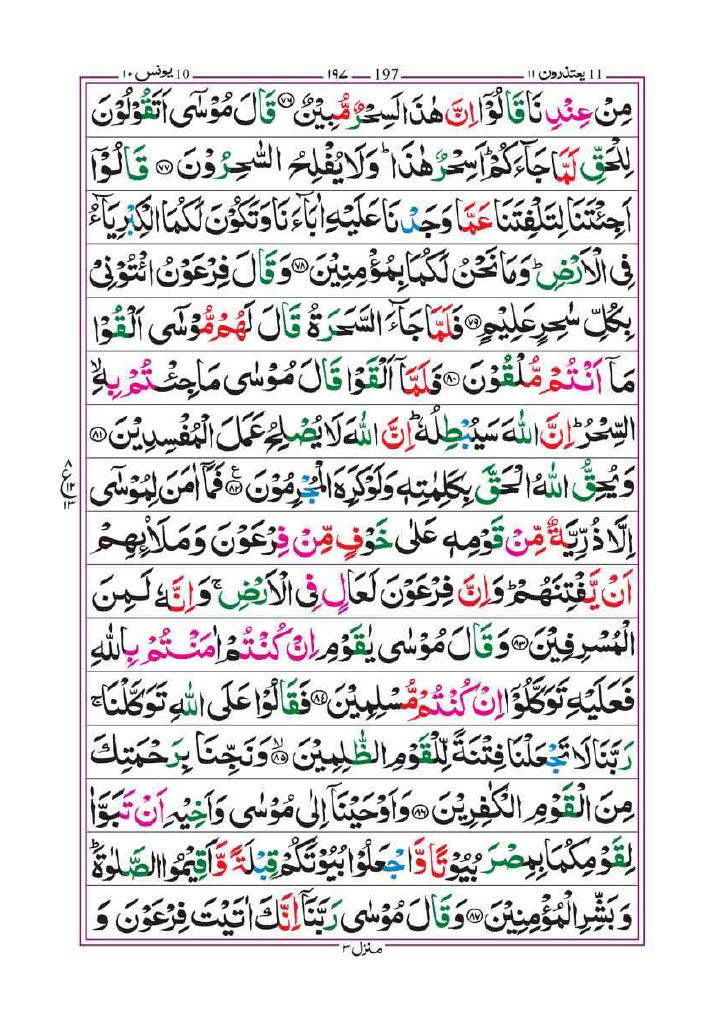 11 یعتذرون ۱۱ 197 ۱۹۷ 10 یونس ۱۰
مِنْ عِنْدِنَا قَالُوْۤا اِنَّ هٰذَا لَسِحْرٌ مُّبِیْنٌ ﴿۷۶﴾ قَالَ مُوْسٰۤی اَتَقُوْلُوْنَ
لِلْحَقِّ لَمَّا جَآءَكُمْ ؕ اَسِحْرٌ هٰذَا ؕ وَلَا یُفْلِحُ السّٰحِرُوْنَ ﴿۷۷﴾ قَالُوْۤا
اَجِئْتَنَا لِتَلْفِتَنَا عَمَّا وَجَدْنَا عَلَیْهِ اٰبَآءَنَا وَتَكُوْنَ لَكُمَا الْكِبْرِیَآءُ
فِی الْاَرْضِ ؕ وَمَا نَحْنُ لَكُمَا بِمُؤْمِنِیْنَ ﴿۷۸﴾ وَقَالَ فِرْعَوْنُ ائْتُوْنِیْ
بِكُلِّ سٰحِرٍ عَلِیْمٍ ﴿۷۹﴾ فَلَمَّا جَآءَ السَّحَرَةُ قَالَ لَهُمْ مُّوْسٰۤی اَلْقُوْا
مَاۤ اَنْتُمْ مُّلْقُوْنَ ﴿۸۰﴾ فَلَمَّاۤ اَلْقَوْا قَالَ مُوْسٰی مَا جِئْتُمْ بِهِ ۙ
السِّحْرُ ؕ اِنَّ اللّٰهَ سَیُبْطِلُهٗ ؕ اِنَّ اللّٰهَ لَا یُصْلِحُ عَمَلَ الْمُفْسِدِیْنَ ﴿۸۱﴾
وَیُحِقُّ اللّٰهُ الْحَقَّ بِكَلِمٰتِهٖ وَلَوْ كَرِهَ الْمُجْرِمُوْنَ ﴿۸۲﴾ ع فَمَاۤ اٰمَنَ لِمُوْسٰۤی
۸ ع ۱۲ ۱۳
اِلَّا ذُرِّیَّةٌ مِّنْ قَوْمِهٖ عَلٰی خَوْفٍ مِّنْ فِرْعَوْنَ وَمَلَا۟ئِهِمْ
اَنْ یَّفْتِنَهُمْ ؕ وَاِنَّ فِرْعَوْنَ لَعَالٍ فِی الْاَرْضِ ۚ وَاِنَّهٗ لَمِنَ
الْمُسْرِفِیْنَ ﴿۸۳﴾ وَقَالَ مُوْسٰی یٰقَوْمِ اِنْ كُنْتُمْ اٰمَنْتُمْ بِاللّٰهِ
فَعَلَیْهِ تَوَكَّلُوْۤا اِنْ كُنْتُمْ مُّسْلِمِیْنَ ﴿۸۴﴾ فَقَالُوْا عَلَی اللّٰهِ تَوَكَّلْنَا ۚ
رَبَّنَا لَا تَجْعَلْنَا فِتْنَةً لِّلْقَوْمِ الظّٰلِمِیْنَ ﴿۸۵﴾ ۙ وَنَجِّنَا بِرَحْمَتِكَ
مِنَ الْقَوْمِ الْكٰفِرِیْنَ ﴿۸۶﴾ وَاَوْحَیْنَاۤ اِلٰی مُوْسٰی وَاَخِیْهِ اَنْ تَبَوَّاٰ
لِقَوْمِكُمَا بِمِصْرَ بُیُوْتًا وَّاجْعَلُوْا بُیُوْتَكُمْ قِبْلَةً وَّاَقِیْمُوا الصَّلٰوةَ ؕ
وَبَشِّرِ الْمُؤْمِنِیْنَ ﴿۸۷﴾ وَقَالَ مُوْسٰی رَبَّنَاۤ اِنَّكَ اٰتَیْتَ فِرْعَوْنَ وَ
منزل ۳